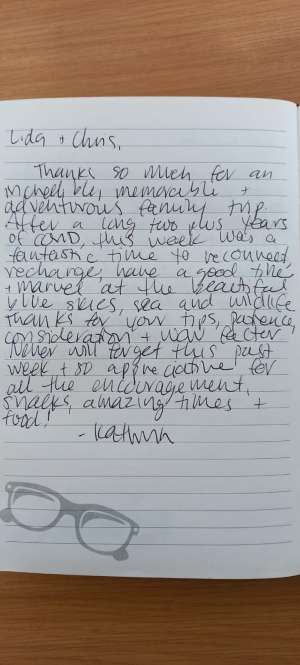 Lida + Chris,
Thanks so much for an
incredible, memorable +
adventurous family trip.
After a long two plus years
of COVID, this week was a
fantastic time to reconnect,
recharge, have a good time
+ marvel at the beautiful
blue skies, sea and wildlife.
Thanks for your tips, patience,
consideration + wow factor.
Never will forget this past
week + so appreciative for
all the encouragement,
snacks, amazing times +
food!